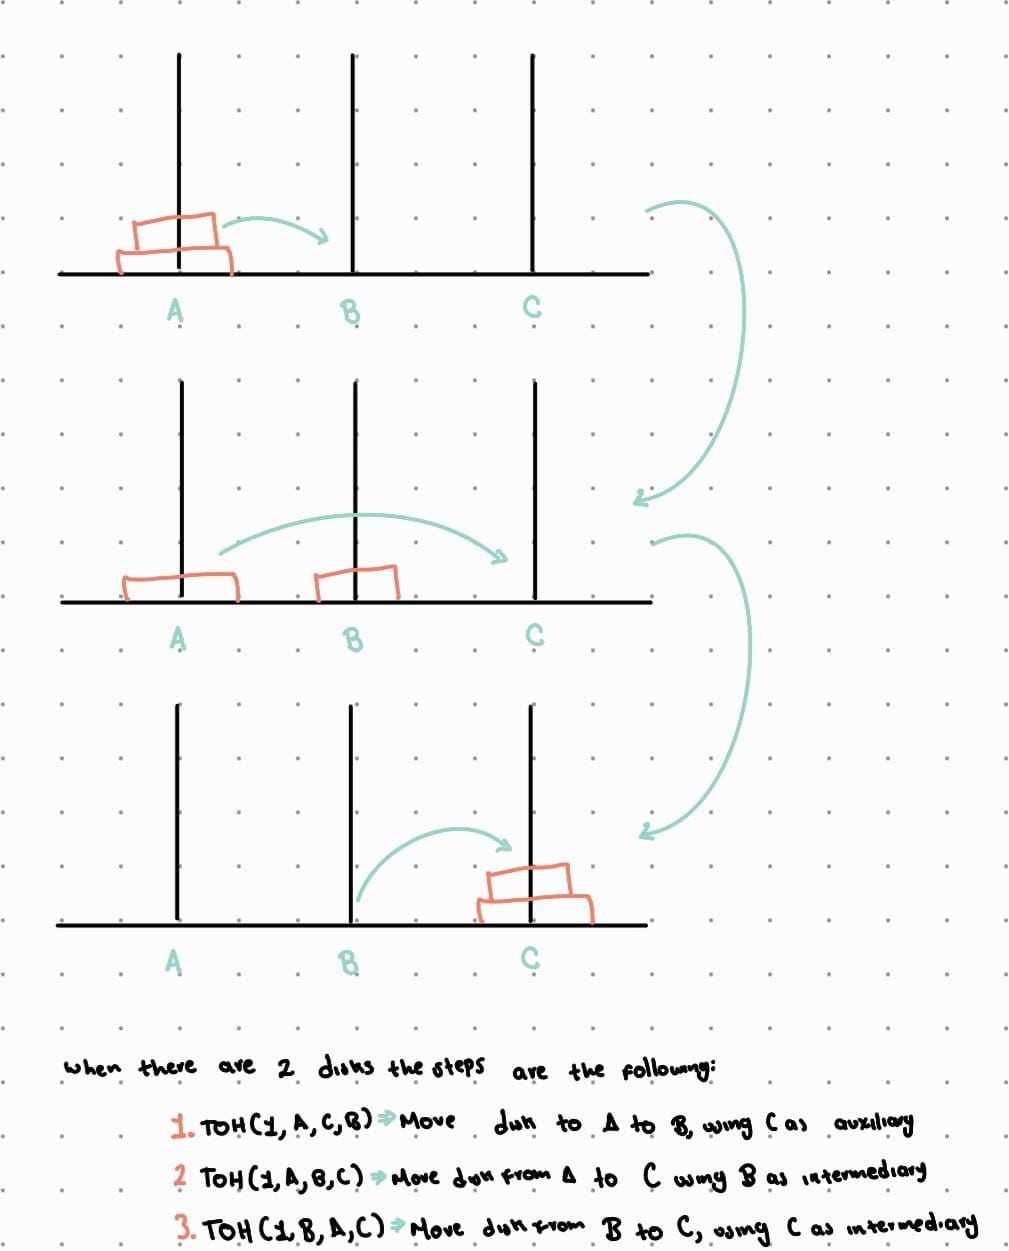 A B C
A B C
A B C
when there are 2 disks the steps are the following:
1. TOH(1, A, C, B) ⇒ Move disk to A to B, using C as auxiliary
2 TOH (1, A, B, C) ⇒ Move disk from A to C using B as intermediary
3. TOH (1, B, A, C) ⇒ Move disk from B to C, using C as intermediary